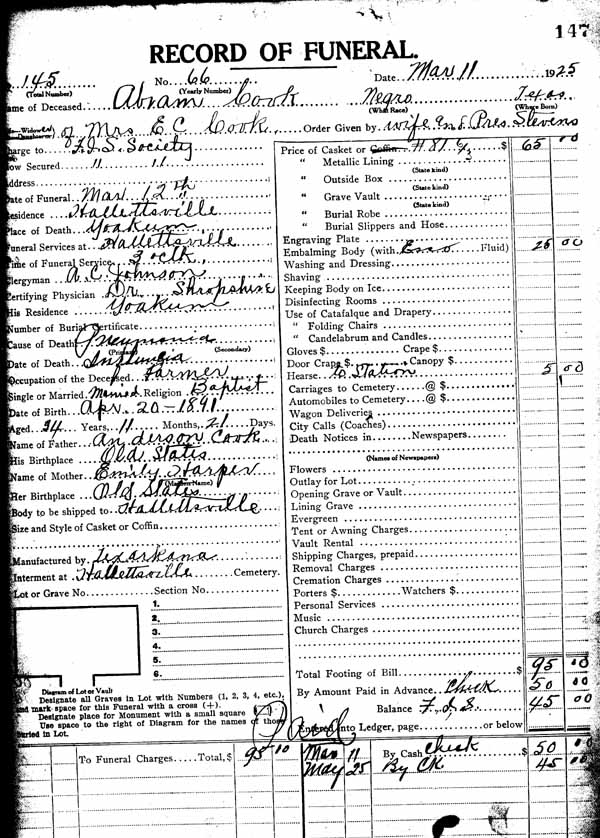 147
RECORD OF FUNERAL.
145 No. 66 Date Mar 11 1925
(Total Number) (Yearly Number)
ame of Deceased Abram Cook Negro Texas
(What Race) (Where Born)
Widower of Mrs E C Cook Order Given by wife and Pres. Stevens
harge to F. J. S. Society
ow Secured " "
Address
ate of Funeral Mar 12th
Residence Hallettsville
Place of Death Yoakum
Funeral Services at Hallettsville
ime of Funeral Service 3 oclk
Clergyman A. C. Johnson
Certifying Physician Dr Shropshire
His Residence Yoakum
Number of Burial Certificate
Cause of Death Pneumonia
(Primary) (Secondary)
Date of Death Influncia
Occupation of the Deceased Farmer
Single or Married Married Religion Baptist
Date of Birth Apr. 20 - 1891
Aged 34 Years, 11 Months, 21 Days.
Name of Father Anderson Cook
His Birthplace Old States
Name of Mother Emily Harper
(Maiden Name)
Her Birthplace Old States
Body to be shipped to Hallettsville
Size and Style of Casket or Coffin
Manufactured by Texarkana
Interment at Hallettsville Cemetery.
Lot or Grave No. Section No.
1.
2.
3.
4.
5.
6.
Diagram of Lot or Vault
Designate all Graves in Lot with Numbers (1, 2, 3, 4, etc.)
and mark space for this Funeral with a cross (+).
Designate place for Monument with a small square
Use space to the right of Diagram for the names of those
Buried in Lot.
Price of Casket or Coffin # 81 $ 65 00
" Metallic Lining
(State kind)
" Outside Box
(State kind)
" Grave Vault
(State kind)
" Burial Robe
" Burial Slippers and Hose
Engraving Plate
Embalming Body (with Esco Fluid) 25 00
Washing and Dressing
Shaving
Keeping Body on Ice
Disinfecting Rooms
Use of Catafalque and Drapery
" Folding Chairs
" Candelabrum and Candles
Gloves $ Crape $
Door Crape $ Canopy $
Hearse to Station 5 00
Carriages to Cemetery @ $
Automobiles to Cemetery @ $
Wagon Deliveries
City Calls (Coaches)
Death Notices in Newspapers
(Names of Newspapers)
Flowers
Outlay for Lot
Opening Grave or Vault
Lining Grave
Evergreen
Tent or Awning Charges
Vault Rental
Shipping Charges, prepaid
Removal Charges
Cremation Charges
Porters $ Watchers $
Personal Services
Music
Church Charges
Total Footing of Bill $ 95 00
By Amount Paid in Advance Check 50 00
Balance F. J. S. 45 00
Paid
Entered into Ledger, page or below
To Funeral Charges Total, $ 95 00 Mar 11 By Cash Check $ 50 00
May 25 By CK 45 00